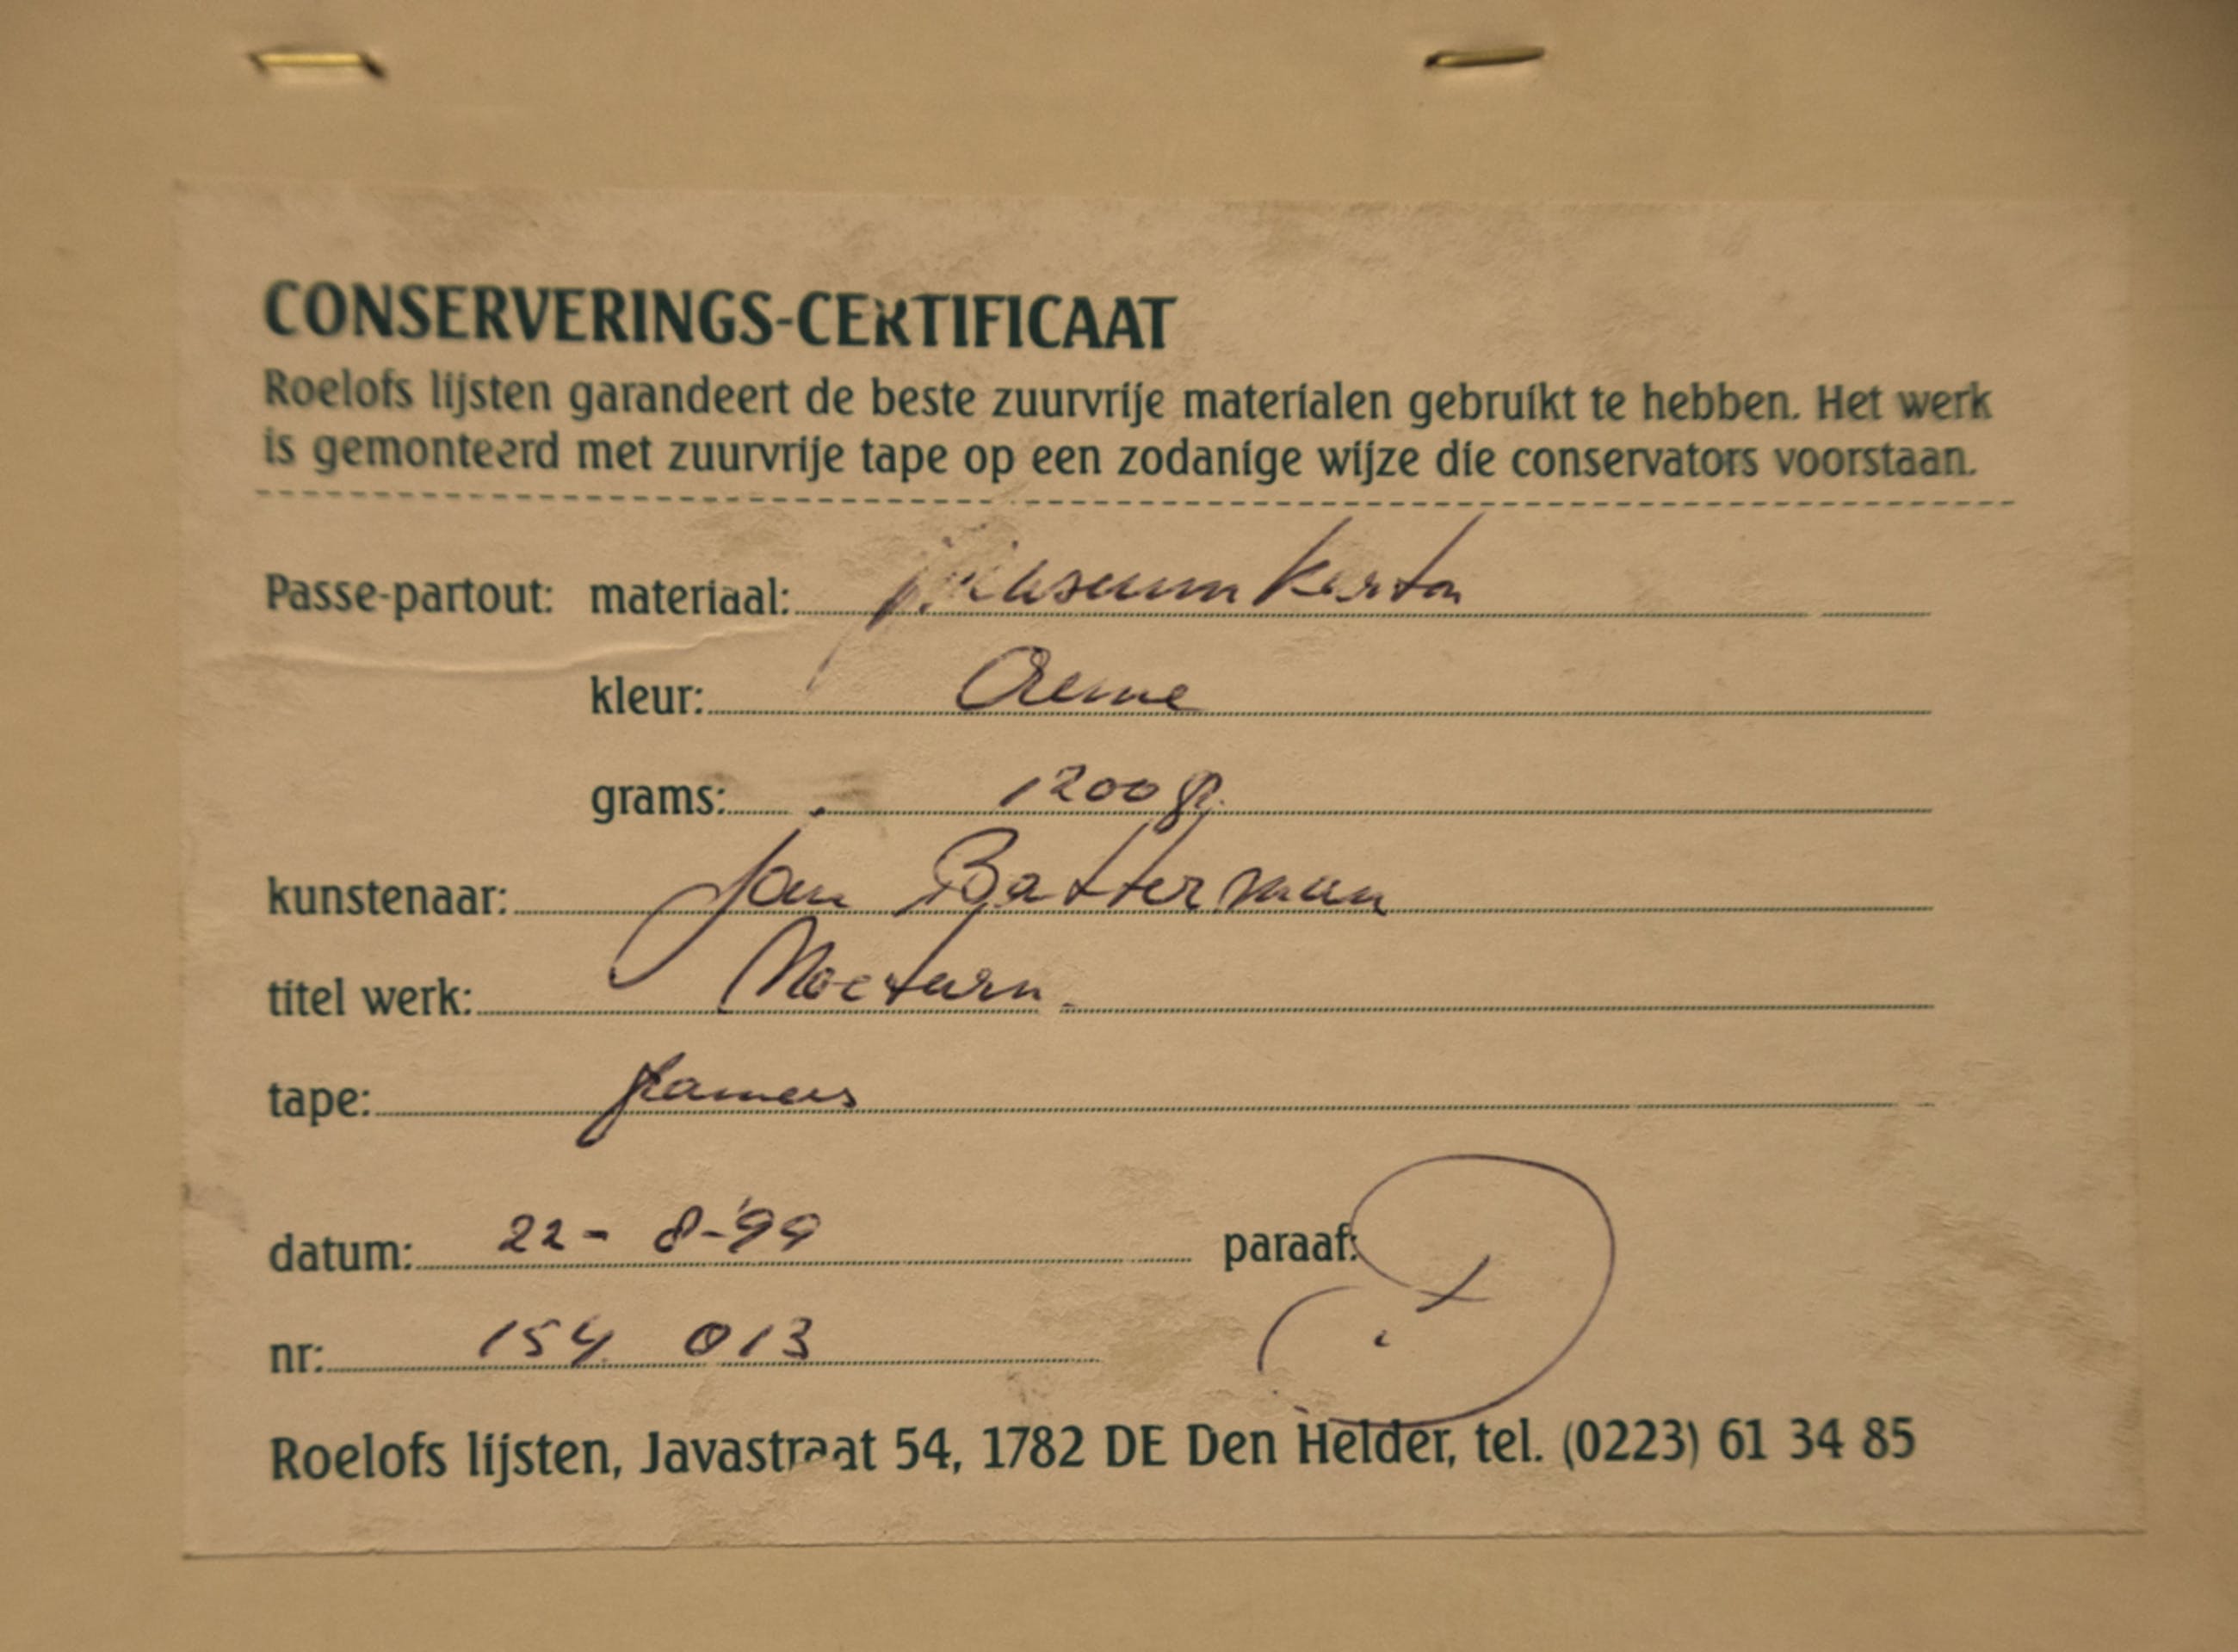 CONSERVERINGS-CERTIFICAAT
Roelofs lijsten garandeert de beste zuurvrije materialen gebruikt te hebben. Het werk
is gemonteerd met zuurvrije tape op een zodanige wijze die conservators voorstaan.
Passe-partout: materiaal: Museumkarton
kleur: Creme
grams: 1200 gr.
kunstenaar: Jan Batterman
titel werk: Nocturn
tape:
datum: 22-8-'99 paraaf:
nr: 154 013
Roelofs lijsten, Javastraat 54, 1782 DE Den Helder, tel. (0223) 61 34 85